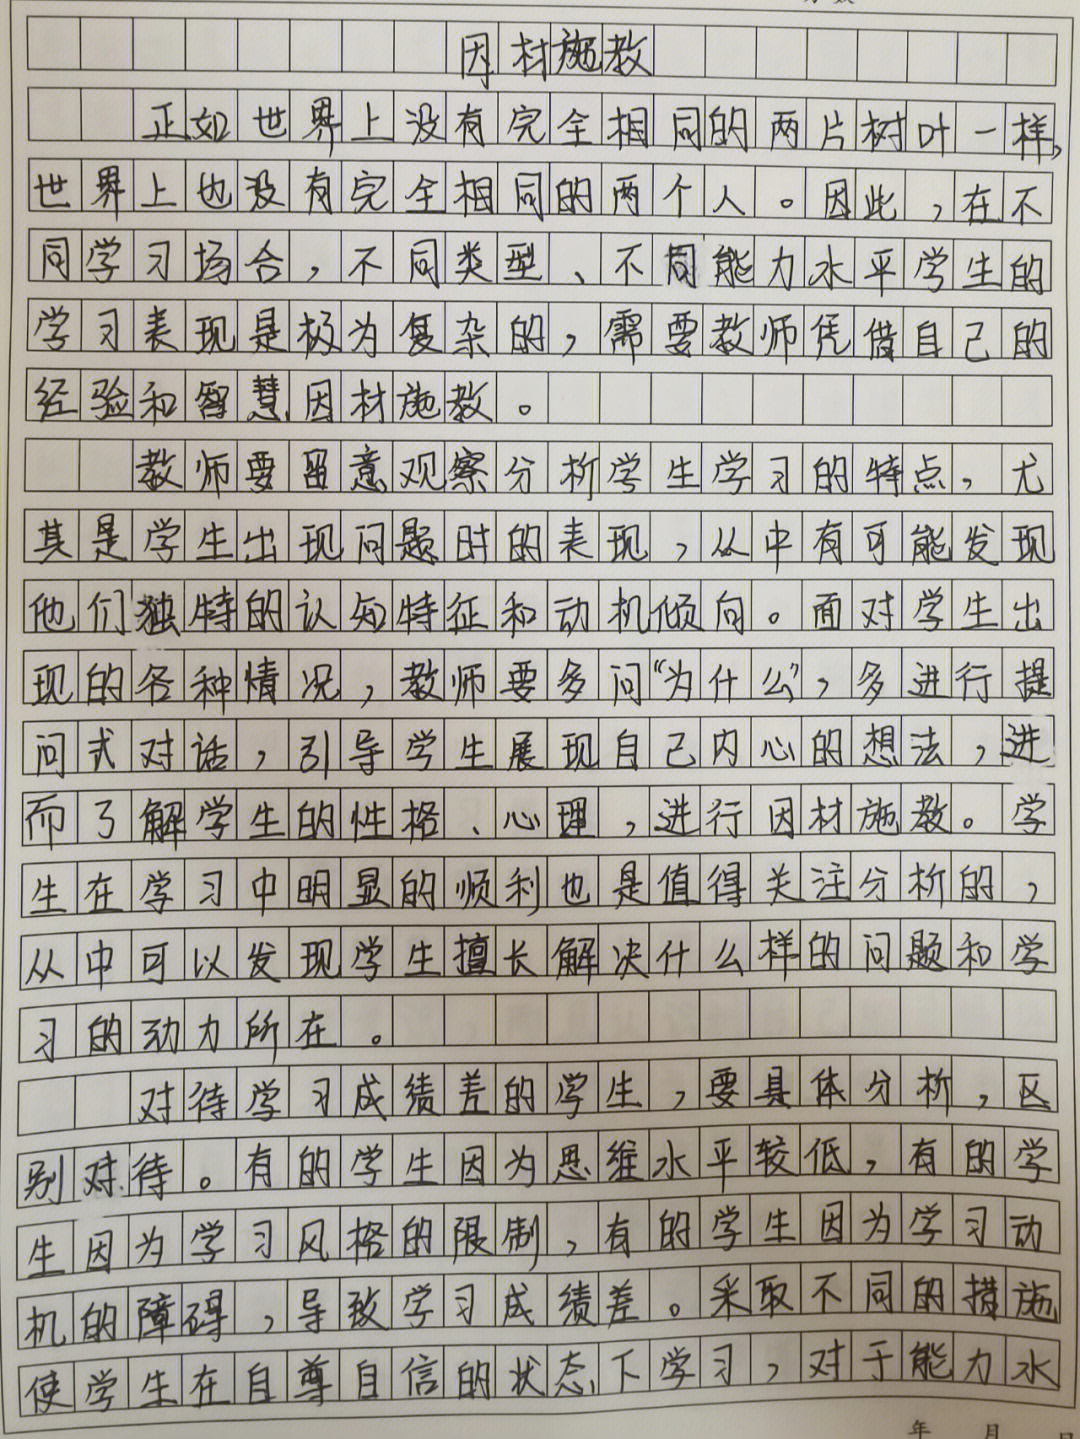 因材施教
正如世界上没有完全相同的两片树叶一样,
世界上也没有完全相同的两个人。因此,在不
同学习场合,不同类型、不同能力水平学生的
学习表现是极为复杂的,需要教师凭借自己的
经验和智慧因材施教。
教师要留意观察分析学生学习的特点,尤
其是学生出现问题时的表现,从中有可能发现
他们独特的认知特征和动机倾向。面对学生出
现的各种情况,教师要多问“为什么”,多进行提
问式对话,引导学生展现自己内心的想法,进
而了解学生的性格、心理,进行因材施教。学
生在学习中明显的顺利也是值得关注分析的,
从中可以发现学生擅长解决什么样的问题和学
习的动力所在。
对待学习成绩差的学生,要具体分析,区
别对待。有的学生因为思维水平较低,有的学
生因为学习风格的限制,有的学生因为学习动
机的障碍,导致学习成绩差。采取不同的措施
使学生在自尊自信的状态下学习,对于能力水
年 月